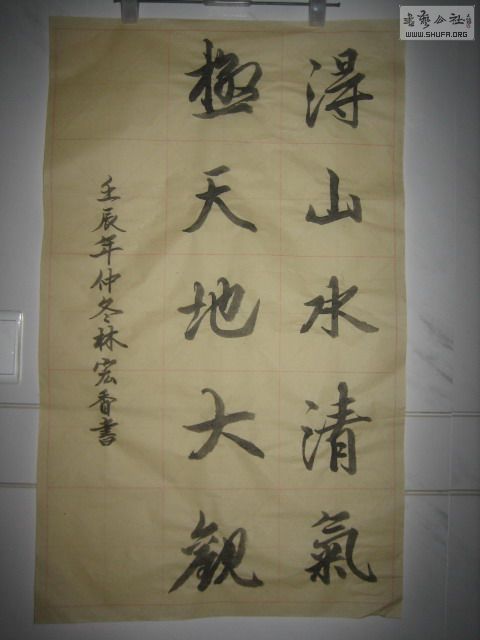 得山水清氣
極天地大觀
壬辰年仲冬林宏香書
書藝公社
WWW.SHUFA.ORG